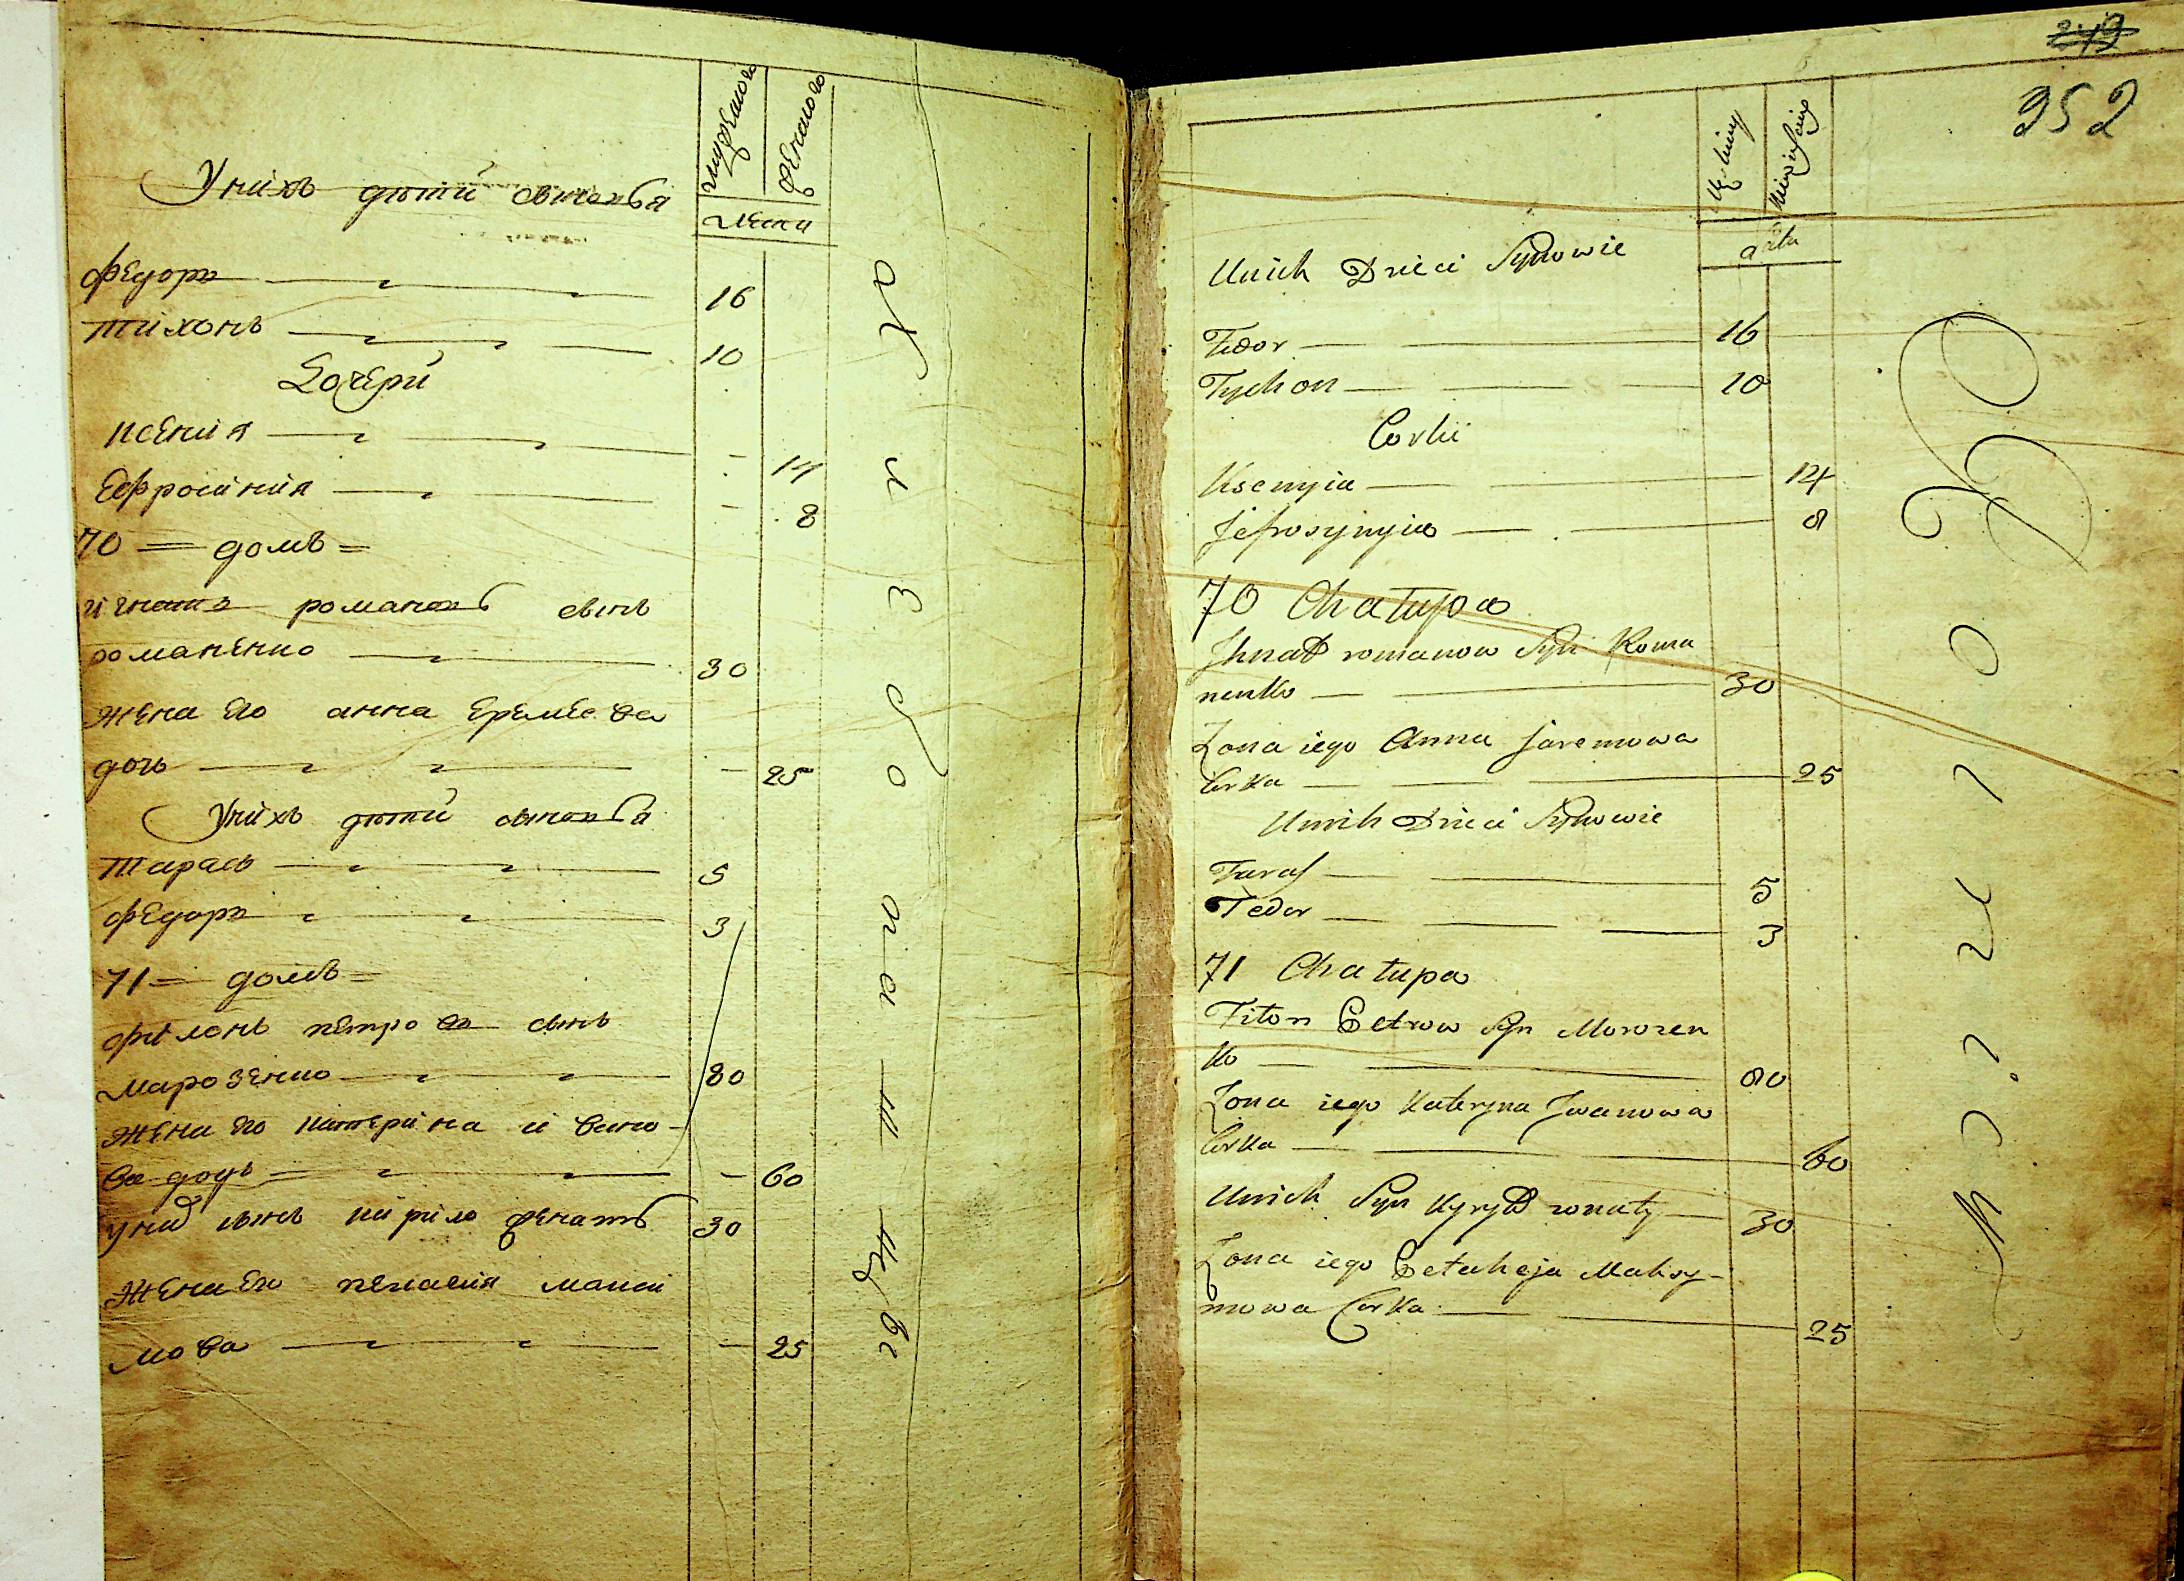 мужеска
женскаго
Унихъ дѣти сыновья
лета
федоръ 16
тихонъ 10
Дочери
ксения 14
Ефросиния 8
70 = домъ =
игнатъ романовъ сынъ
романенко 30
жена его анна Еремеева
дочь 25
Унихъ дѣти сыновья
тарасъ 5
федоръ 3
71 = домъ =
филонъ петровъ сынъ
марозенко 80
жена его катерина ивано-
ва дочь 60
унихъ сынъ кирило женатъ 30
жена его пелагея макси
мова 25
249
352
Męskiey
Unich Dzieci Synowie
Fedor 16
Tychon 10
Corki
Ksenyia 14
Jefrosynyia 8
70 Chatupa
Jhnat romanow Syn Roma
nenko 30
Zona iego Anna Jaremowa
Corka 25
Unich Dzieci Synowie
Taras 5
Fedor 3
71 Chatupa
Filon Petrow Syn Morozen
ko 80
Zona iego Kateryna Iwanowa
Corka 60
Unich Syn Kyryło zonaty 30
Zona iego Pelaheja Maksy-
mowa Corka 25